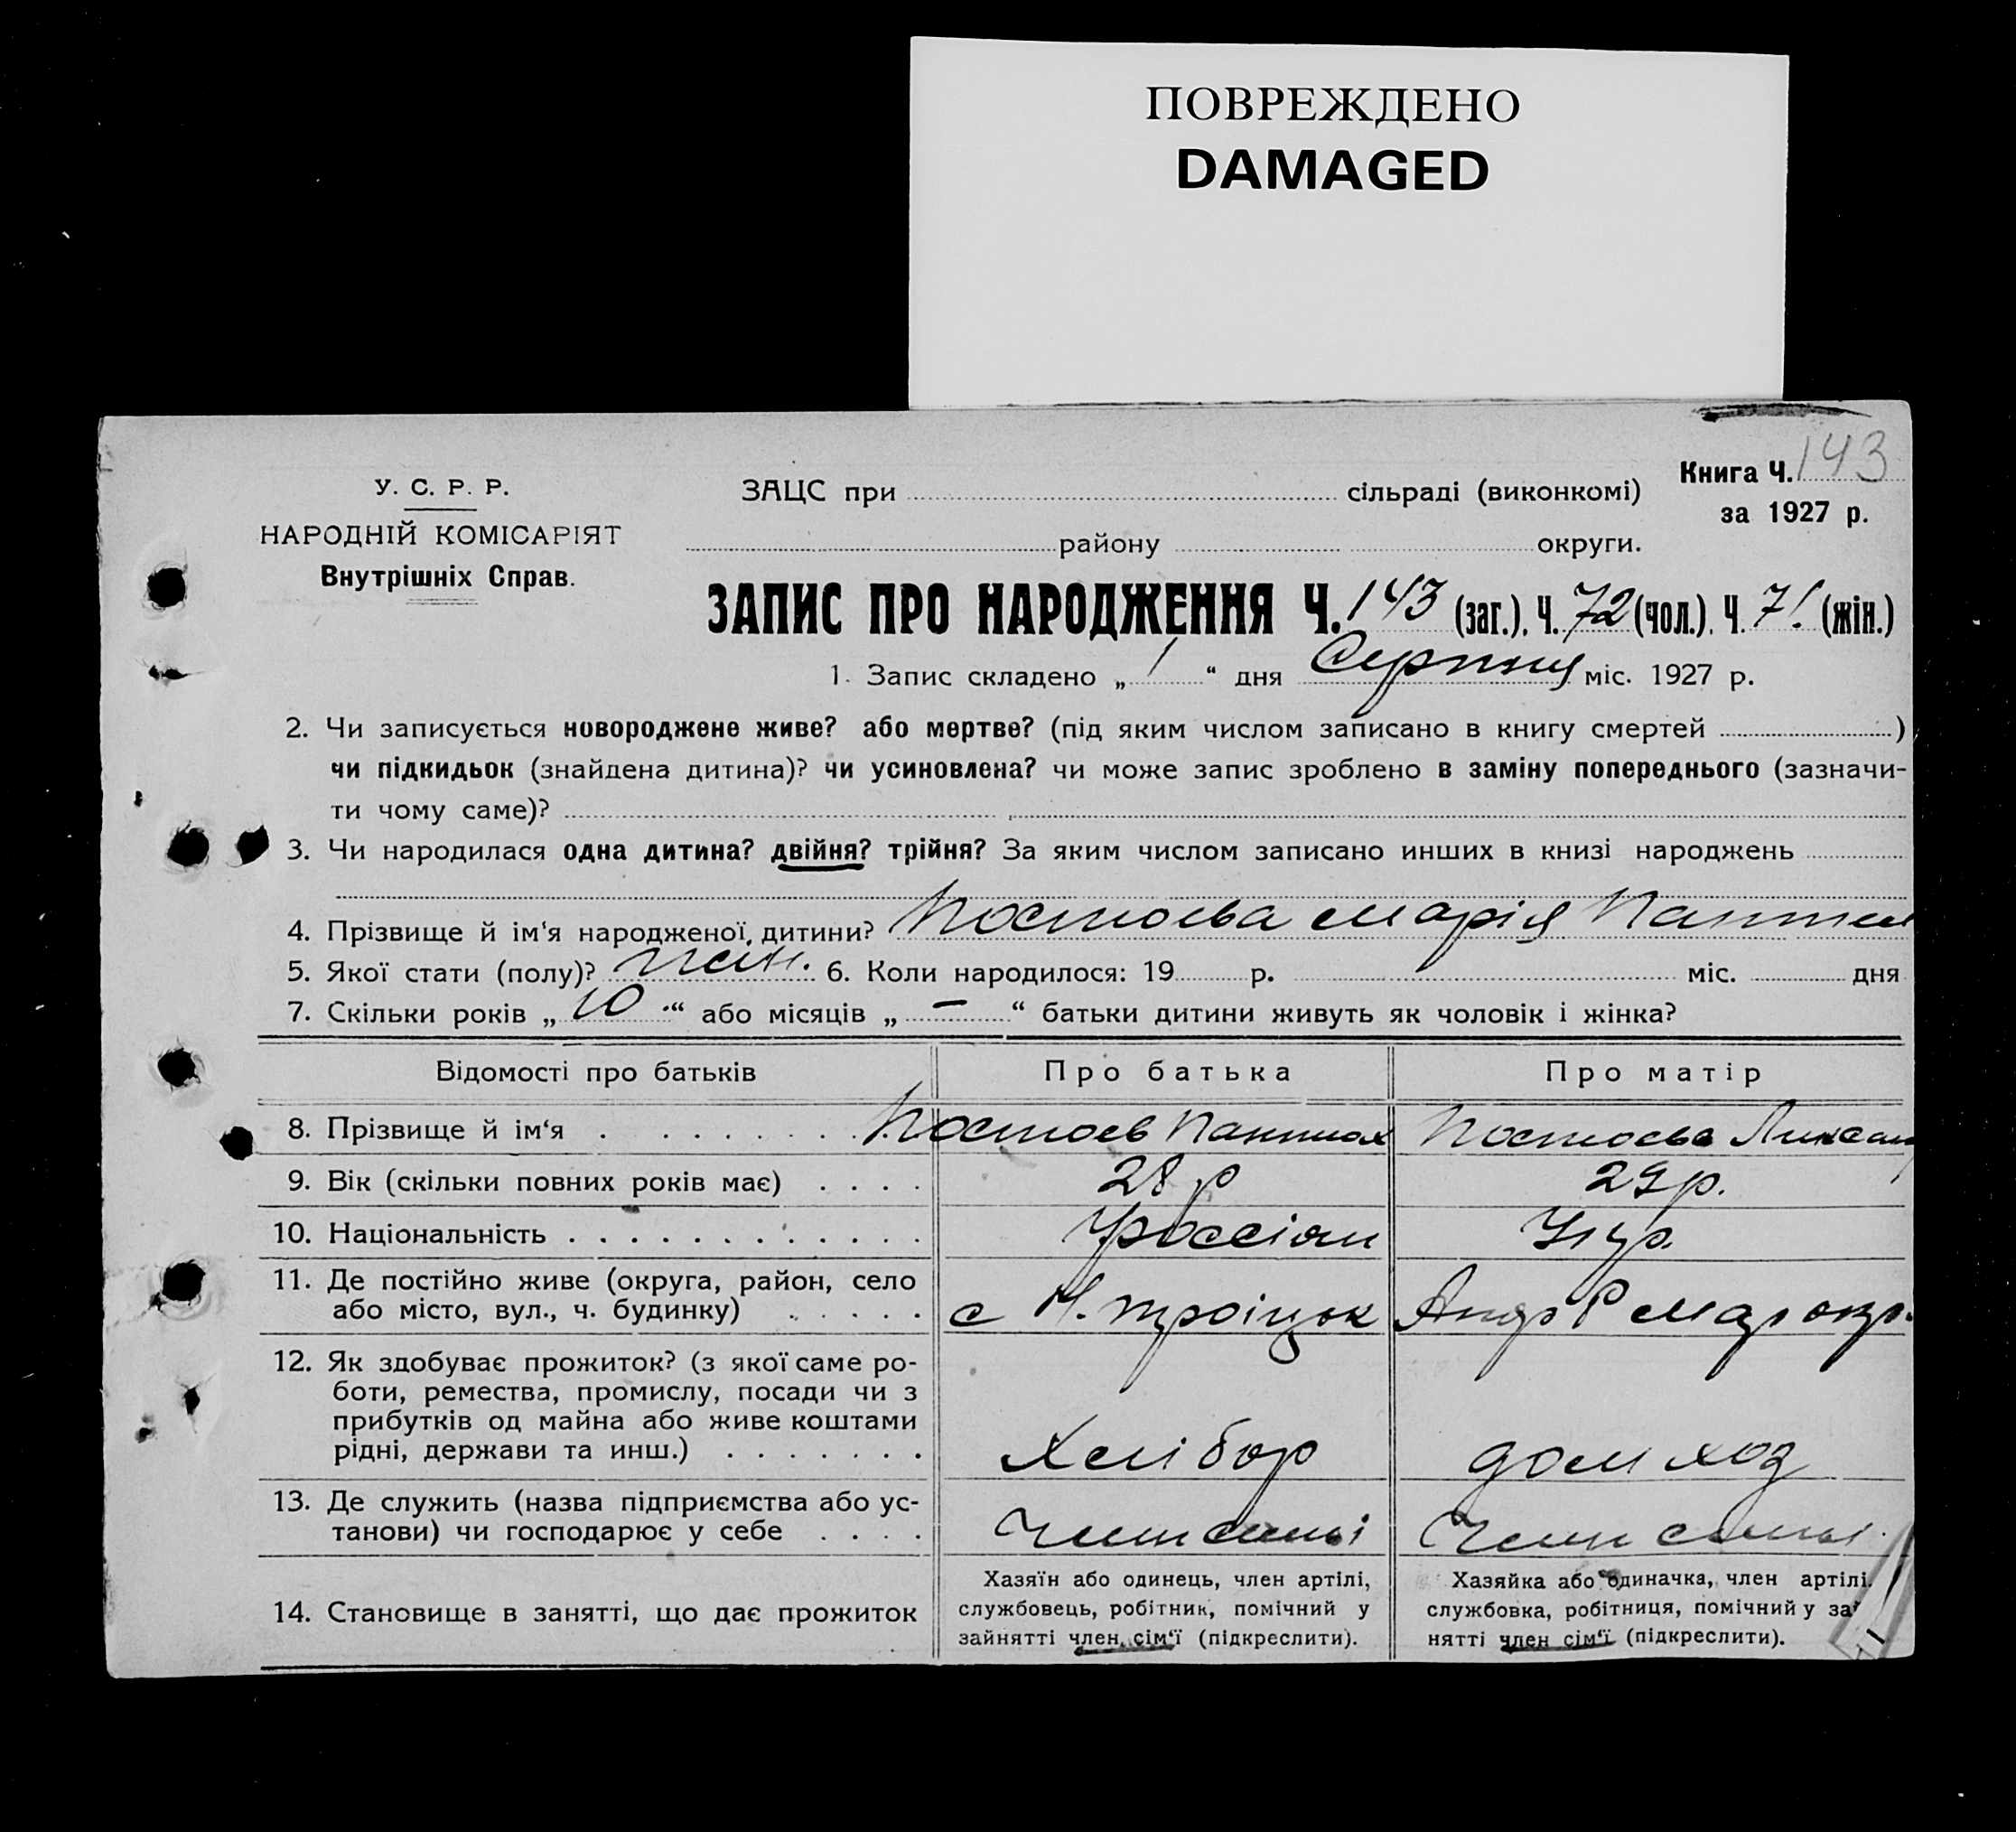 ПОВРЕЖДЕНО
DAMAGED
Книга Ч. 143
за 1927 р.
У. С. Р. Р.
НАРОДНІЙ КОМІСАРІЯТ
Внутрішніх Справ.
ЗАЦС при сільраді (виконкомі)
району округи.
ЗАПИС ПРО НАРОДЖЕННЯ Ч. 143 (заг.), Ч. 72 (чол.), Ч. 71 (жін.)
1. Запис складено „ 1 “ дня Серпня міс. 1927 р.
2. Чи записується новороджене живе? або мертве? (під яким числом записано в книгу смертей )
чи підкидьок (знайдена дитина)? чи усиновлена? чи може запис зроблено в заміну попереднього (зазначи-
ти чому саме)?
3. Чи народилася одна дитина? двійня? трійня? За яким числом записано инших в книзі народжень
4. Прізвище й ім‘я народженої дитини? Постоєва Марія
5. Якої стати (полу)? жін. 6. Коли народилося: 19 р. міс. дня
7. Скільки років „ 10 “ або місяців „ — “ батьки дитини живуть як чоловік і жінка?
Відомості про батьків Про батька Про матір
8. Прізвище й ім‘я . . . . . . . Постоєв Постоєва
9. Вік (скільки повних років має) . . . . 28 р 29 р.
10. Національність . . . . . . . . . . . . . Укр.
11. Де постійно живе (округа, район, село
або місто, вул., ч. будинку) . . . . . с Н. троіцьк Андр Р Мар окр.
12. Як здобуває прожиток? (з якої саме ро-
боти, ремества, промислу, посади чи з
прибутків од майна або живе коштами
рідні, держави та инш.) . . . . . . . Хлібор дом хоз
13. Де служить (назва підприємства або ус-
танови) чи господарює у себе . . . . Член сімьі Член сімьі
14. Становище в занятті, що дає прожиток
Хазяїн або одинець, член артілі,
службовець, робітник, помічний у
зайнятті член сім‘ї (підкреслити).
Хазяйка або одиначка, член артілі.
службовка, робітниця, помічний у за
нятті член сім‘ї (підкреслити).